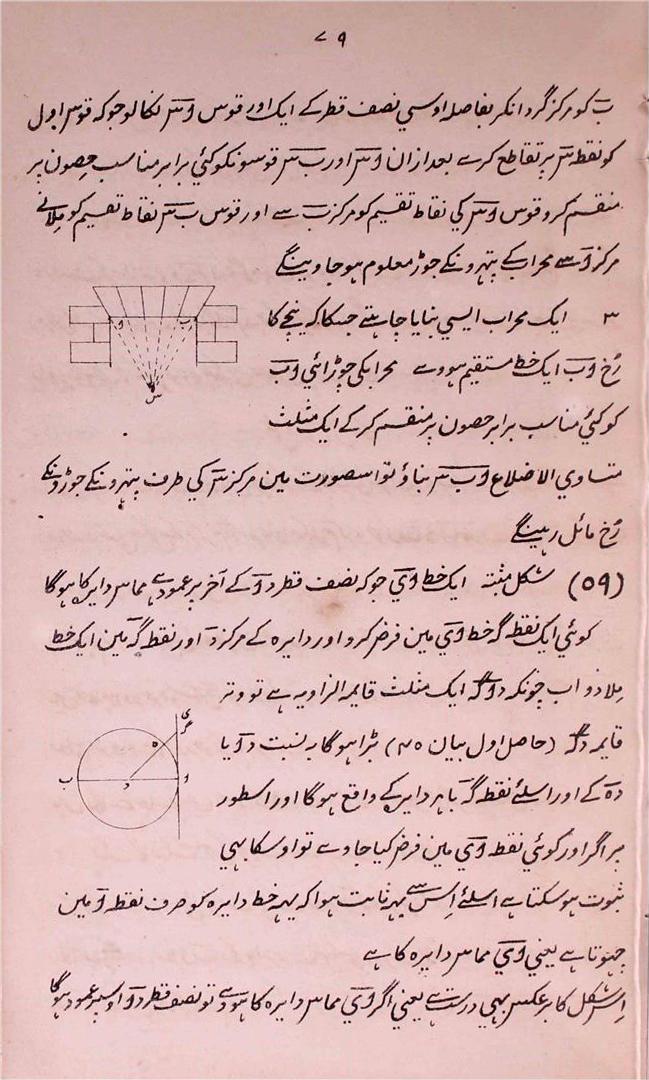 ۷۹
ب کو مرکز گردانکر بفاصلہ اوسی نصف قطر کے ایک اور قوس ءاس نکالو جو کہ قوس اول
کو نقطہ س پر تقاطع کرے بعد ازان ءاس اور ب س قوسونکو کئی برابر مناسب حصون پر
منقسم کرو قوس ءاس کی نقاط تقسیم کو مرکز ب سے اور قوس ب س نقاط تقسیم کو ملانے
مرکز ءا سے محراب کے پتہرونکے جوڑ معلوم ہو جاوینگے
۳ ایک محراب ایسی بنایا چاہتے جسکا کہ نیچے کا
رُخ ءاب ایک خط مستقیم ہووے محرابکی چوڑائی ءاب
کو کئی مناسب برابر حصون پر منقسم کر کے ایک مثلث
متساوی الاضلاع ءاب س بناؤ تو اسصورت مین مرکز س کی طرف پتہرونکے جوڑونکے
رُخ مائل رہینگے
(۵۹) شکل مثبتہ ایک خط ءای جو کہ نصف قطر دءا کے آخر پر عمود ہے مماس دایرہ کا ہوگا
کوئی ایک نقطہ گہ خط ءای مین فرض کرو اور دایرہ کے مرکز د اور نقطہ گہ مین ایک خط
ملا دو اب چونکہ دءاگہ ایک مثلث قایمہ الزاویہ ہے تو وتر
قایمہ دگہ (حاصل اول بیان ۳۵) بڑا ہوگا بہ نسبت دءا یا
دہ کے اور اسلئے نقطہ گہ باہر دایرہ کے واقع ہوگا اور اسطور
پر اگر اور کوئی نقطہ ءای مین فرض کیا جاوے تو اوسکا بہی
ثبوت ہو سکتا ہے اسلئے اِس سے یہہ ثابت ہوا کہ یہہ خط دایرہ کو صرف نقطہ ءا مین
چہوتا ہے یعنی ءای مماس دایرہ کا ہے
اِس شکل کا برعکس بہی درست ہے یعنی اگر ءای مماس دایرہ کا ہووے تو نصف قطر دءا اوسپر عمود ہوگا
ءا ب
س
ی
گہ
ہ
ب د ءا